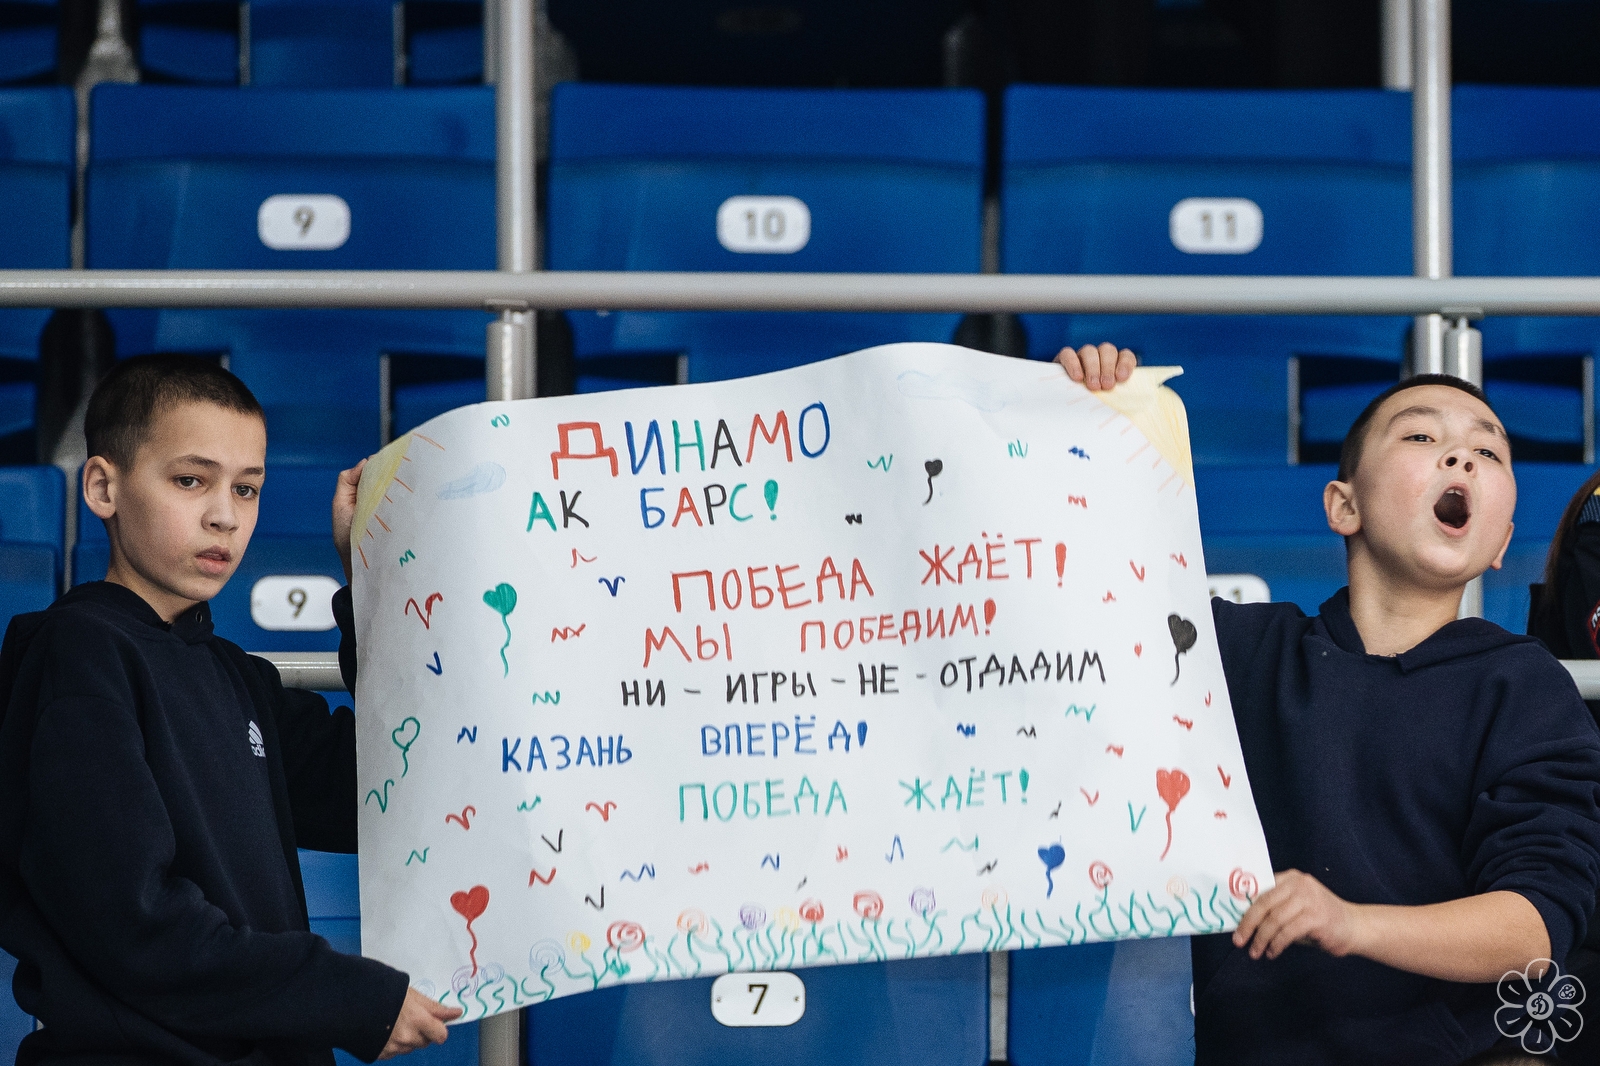 9
10
11
9
11
ДИНАМО
АК БАРС!
ПОБЕДА ЖДЁТ!
МЫ ПОБЕДИМ!
НИ - ИГРЫ - НЕ - ОТДАДИМ
КАЗАНЬ ВПЕРЁД!
ПОБЕДА ЖДЁТ!
7